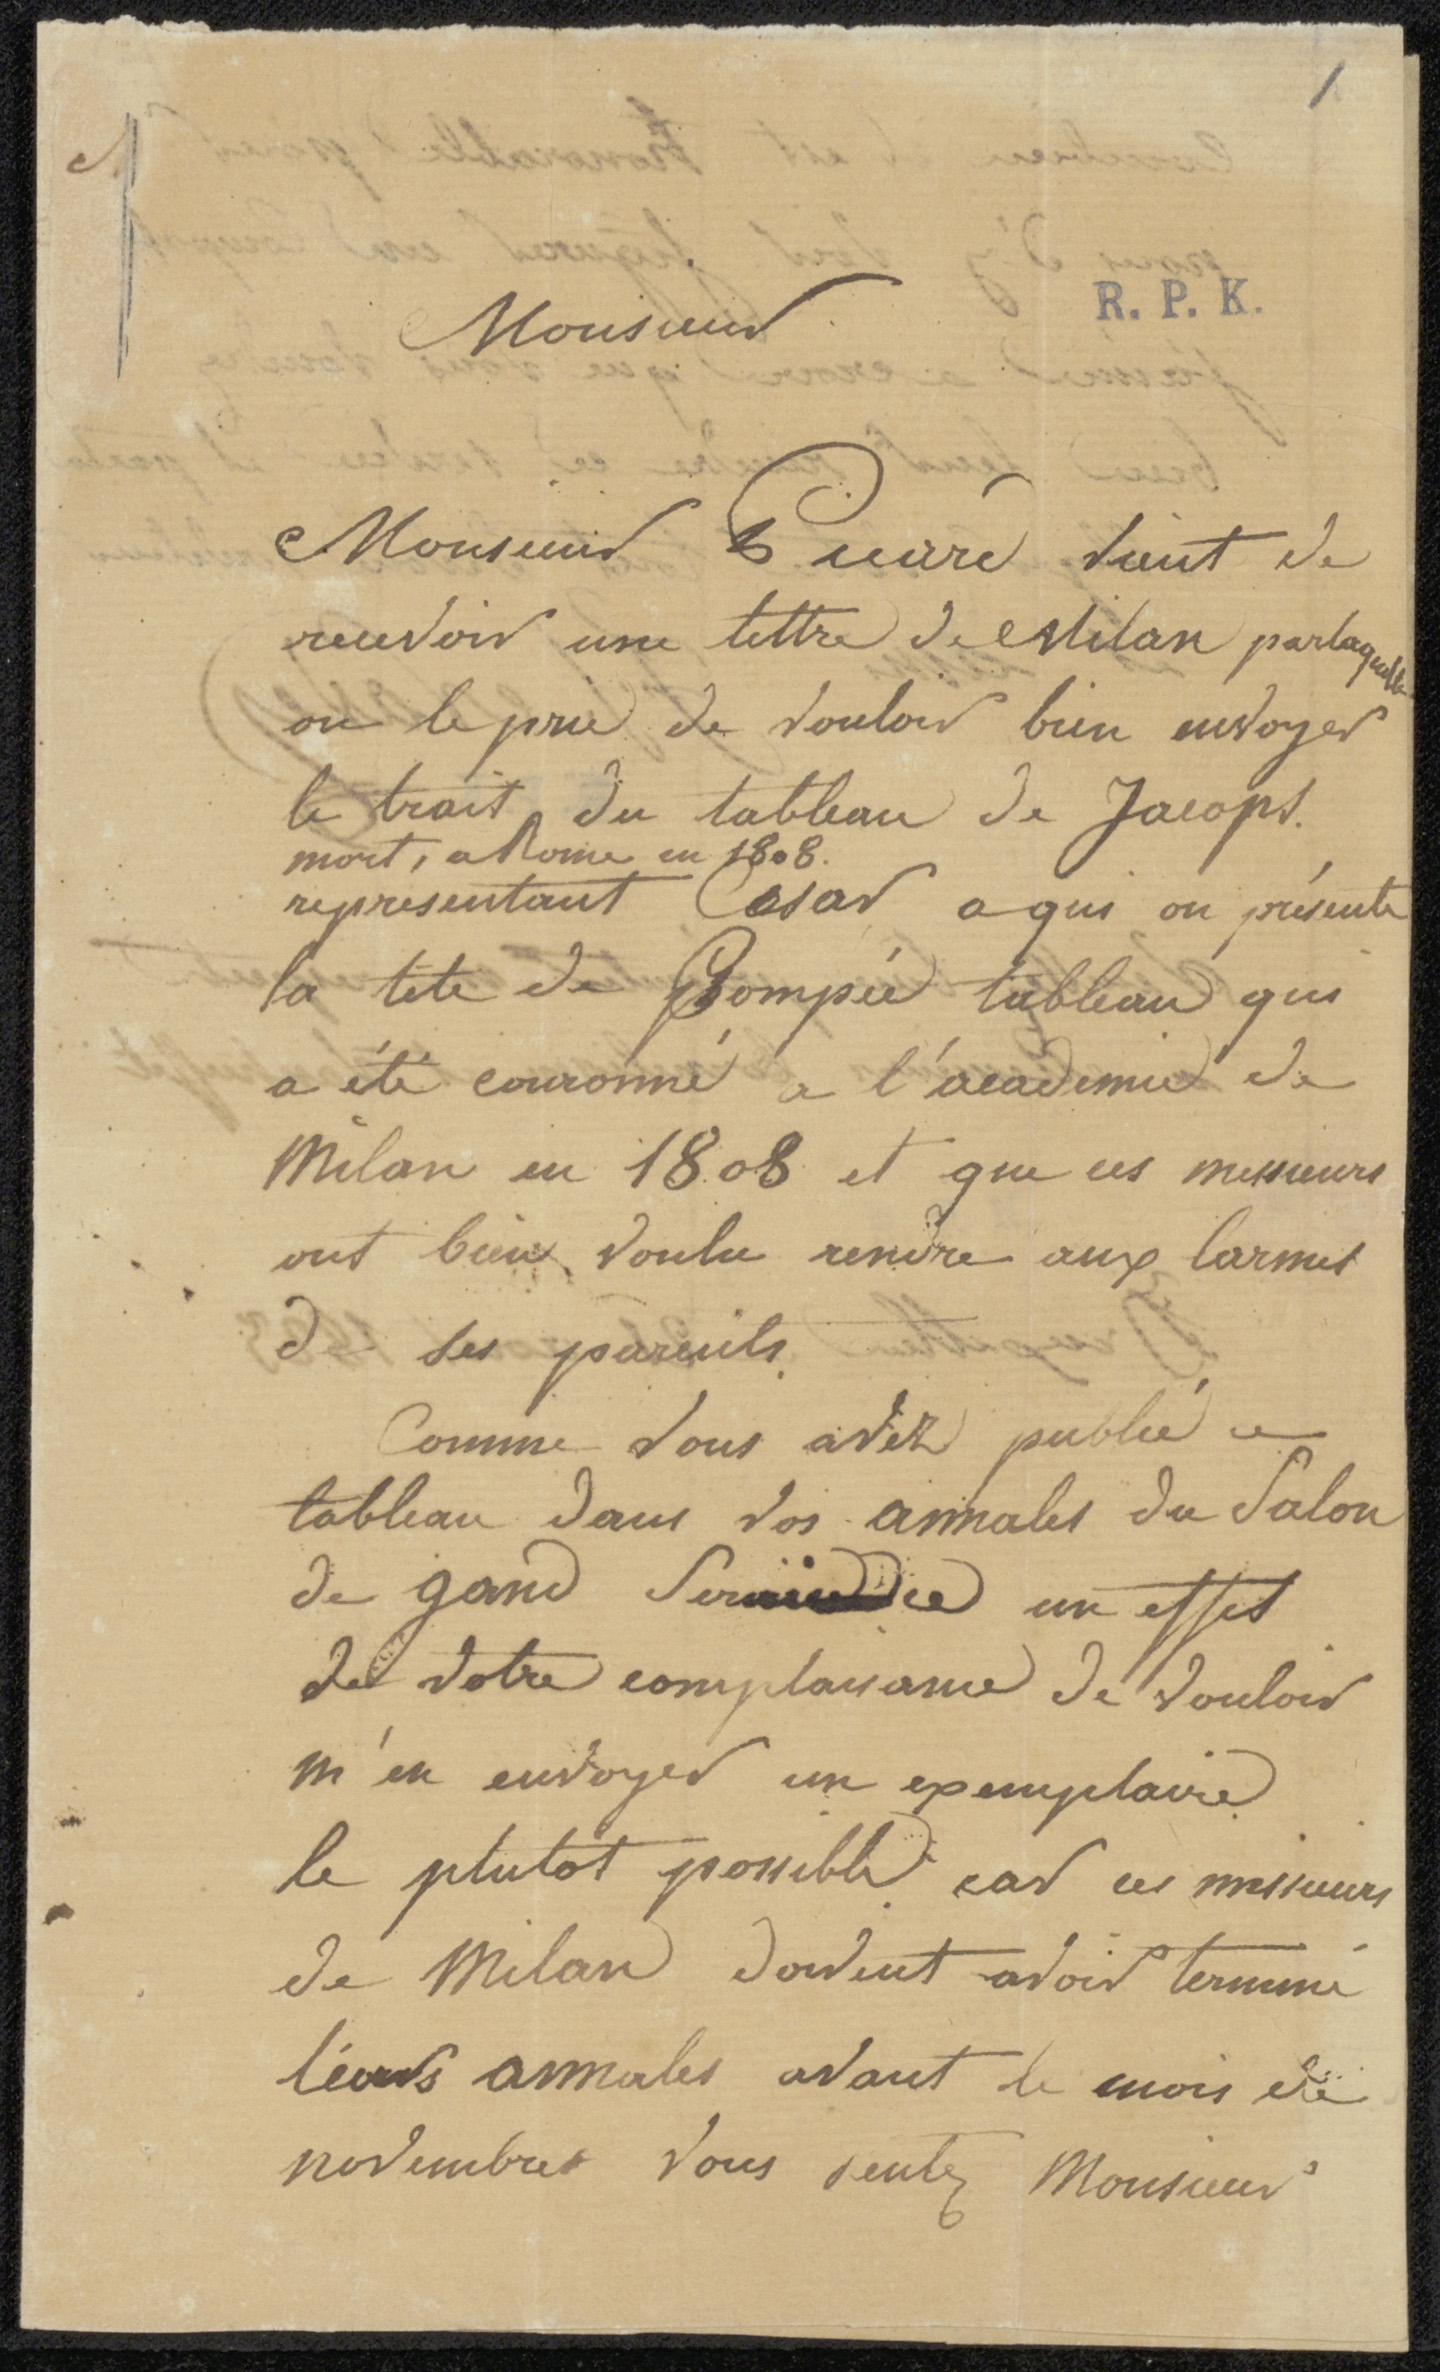 1
R. P. K.
Monsieur
Monsieur vient de
recevoir une lettre de Milan par laquelle
on le prie de vouloir bien envoyer
le trait du tableau de Jacops.
mort, a Rome en 1808.
representant Cesar a qui on présente
la tete de Pompée tableau qui
a été couronné a l'academie de
Milan en 1808 et que ces messieurs
ont bien voulu rendre aux larmes
de ses parents.
Comme vous avez publié ce
tableau dans vos annales du Salon
de gand un effet
de votre complaisance de vouloir
m'en envoyer un exemplaire
le plutot possible car ces messieurs
de Milan doivent avoir terminé
leurs annales avant le mois de
novembre vous sentez Monsieur